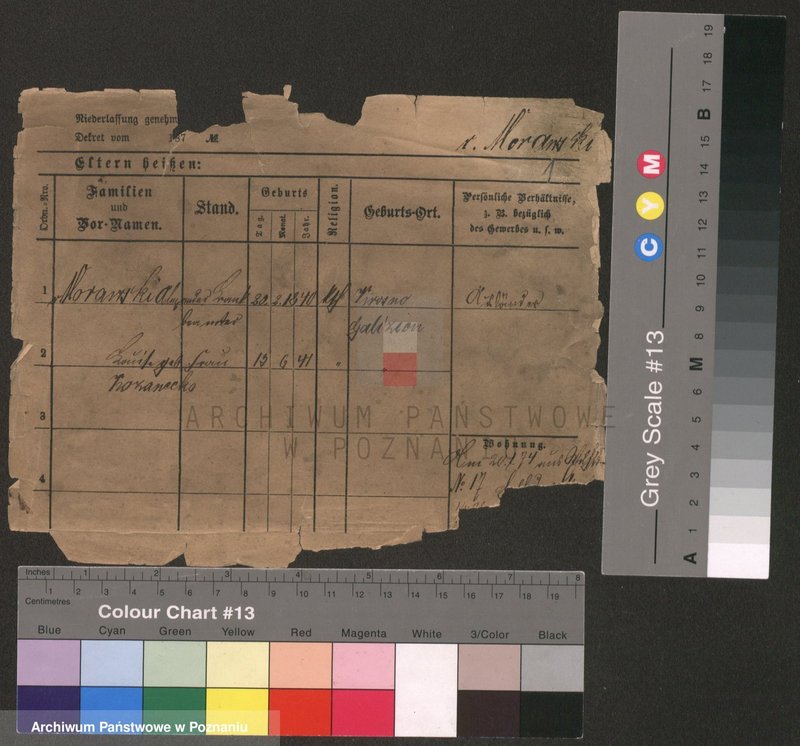 Niederlassung genehm
Dekret vom 187 №
v. Morawski
Eltern heißen:
Ordn.-Nro.
Familien
und
Vor-Namen.
Stand.
Geburts
Tag.
Monat.
Jahr.
Religion.
Geburts-Ort.
Persönliche Verhältnisse,
z. B. bezüglich
des Gewerbes u. s. w.
1 Morawski 20 2 1840 Galizien
2 Louise geb Frau 15 6 41 "
3
Wohnung.
Am 20.1.74 aus
4 № 17
ARCHIWUM PAŃSTWOWE
W POZNANIU
Grey Scale #13
C Y M
A 1 2 3 4 5 6 M 8 9 10 11 12 13 14 15 B 17 18 19
Inches 1 2 3 4 5 6 7 8
Centimetres 1 2 3 4 5 6 7 8 9 10 11 12 13 14 15 16 17 18 19
Colour Chart #13
Blue Cyan Green Yellow Red Magenta White 3/Color Black
Archiwum Państwowe w Poznaniu